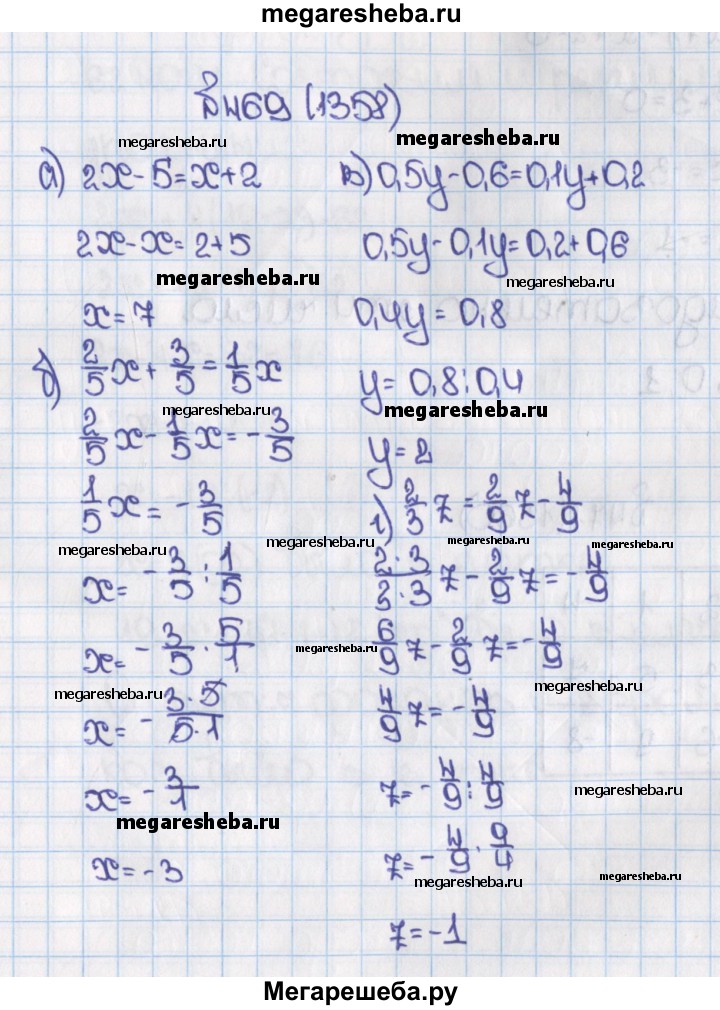 megaresheba.ru
№469 (1358)
megaresheba.ru
megaresheba.ru
а) 2x - 5 = x + 2
2x - x = 2 + 5
megaresheba.ru
x = 7
б) 2/5 x + 3/5 = 1/5 x
megaresheba.ru
2/5 x - 1/5 x = - 3/5
1/5 x = - 3/5
megaresheba.ru
x = - 3/5 : 1/5
x = - 3/5 · 5/1
megaresheba.ru
x = - 3·5/5·1
x = - 3/1
megaresheba.ru
x = -3
в) 0,5y - 0,6 = 0,1y + 0,2
0,5y - 0,1y = 0,2 + 0,6
megaresheba.ru
0,4y = 0,8
y = 0,8 : 0,4
megaresheba.ru
y = 2
г) 2/3 z = 2/9 z - 4/9
megaresheba.ru
megaresheba.ru
megaresheba.ru
2·3/3·3 z - 2/9 z = - 4/9
6/9 z - 2/9 z = - 4/9
megaresheba.ru
megaresheba.ru
4/9 z = - 4/9
z = - 4/9 : 4/9
megaresheba.ru
z = - 4/9 · 9/4
megaresheba.ru
megaresheba.ru
z = -1
Мегарешеба.ру